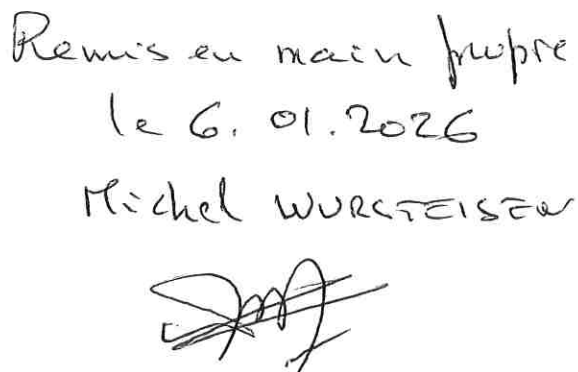 Remis en main propre
le 6.01.2026
Michel WURGTEISEN